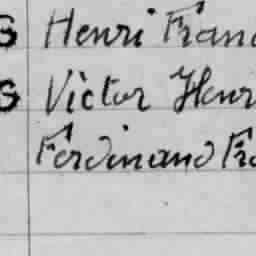 Henri Franc
Victor Henr
Ferdinand Fra